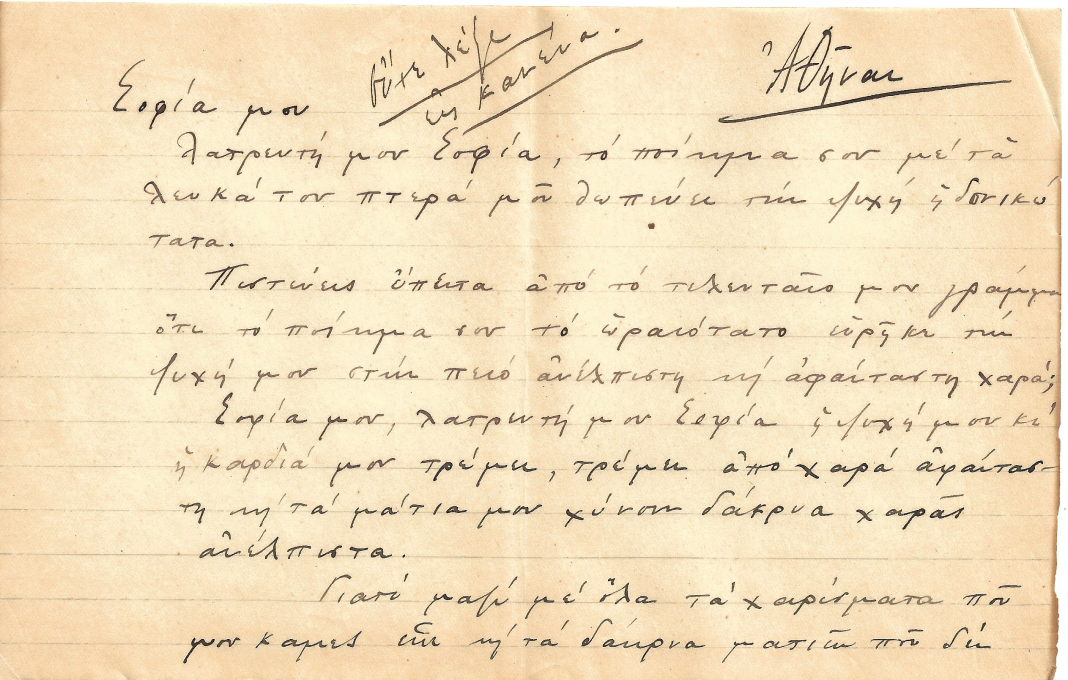 οὔτε λέξι
εἰς κανένα.
Ἀθῆναι
Σοφία μου
Λατρευτή μου Σοφία, τό ποίημα σου μέ τά
λευκά του πτερά μοῦ θωπεύει τήν ψυχή ἡδονικώ
τατα.
Πιστεύεις ὕπειτα ἀπό τό τελευταῖο μου γράμμα
ὅτι τό ποίημα σου τό ὡραιότατο εὑρῆκε τήν
ψυχή μου στήν πειό ἀνέλπιστη κή ἀφάνταστη χαρά;
Σοφία μου, λατρευτή μου Σοφία ἡ ψυχή μου κι'
ἡ καρδιά μου τρέμει, τρέμει ἀπό χαρά ἀφάντασ-
τη κή τά μάτια μου χύνουν δάκρυα χαρᾶς
ἀνέλπιστα.
Γιατί μαζί μέ ὅλα τά χαρίσματα ποῦ
μου καμες κή τά δάκρυα ματιῶν ποῦ δέν